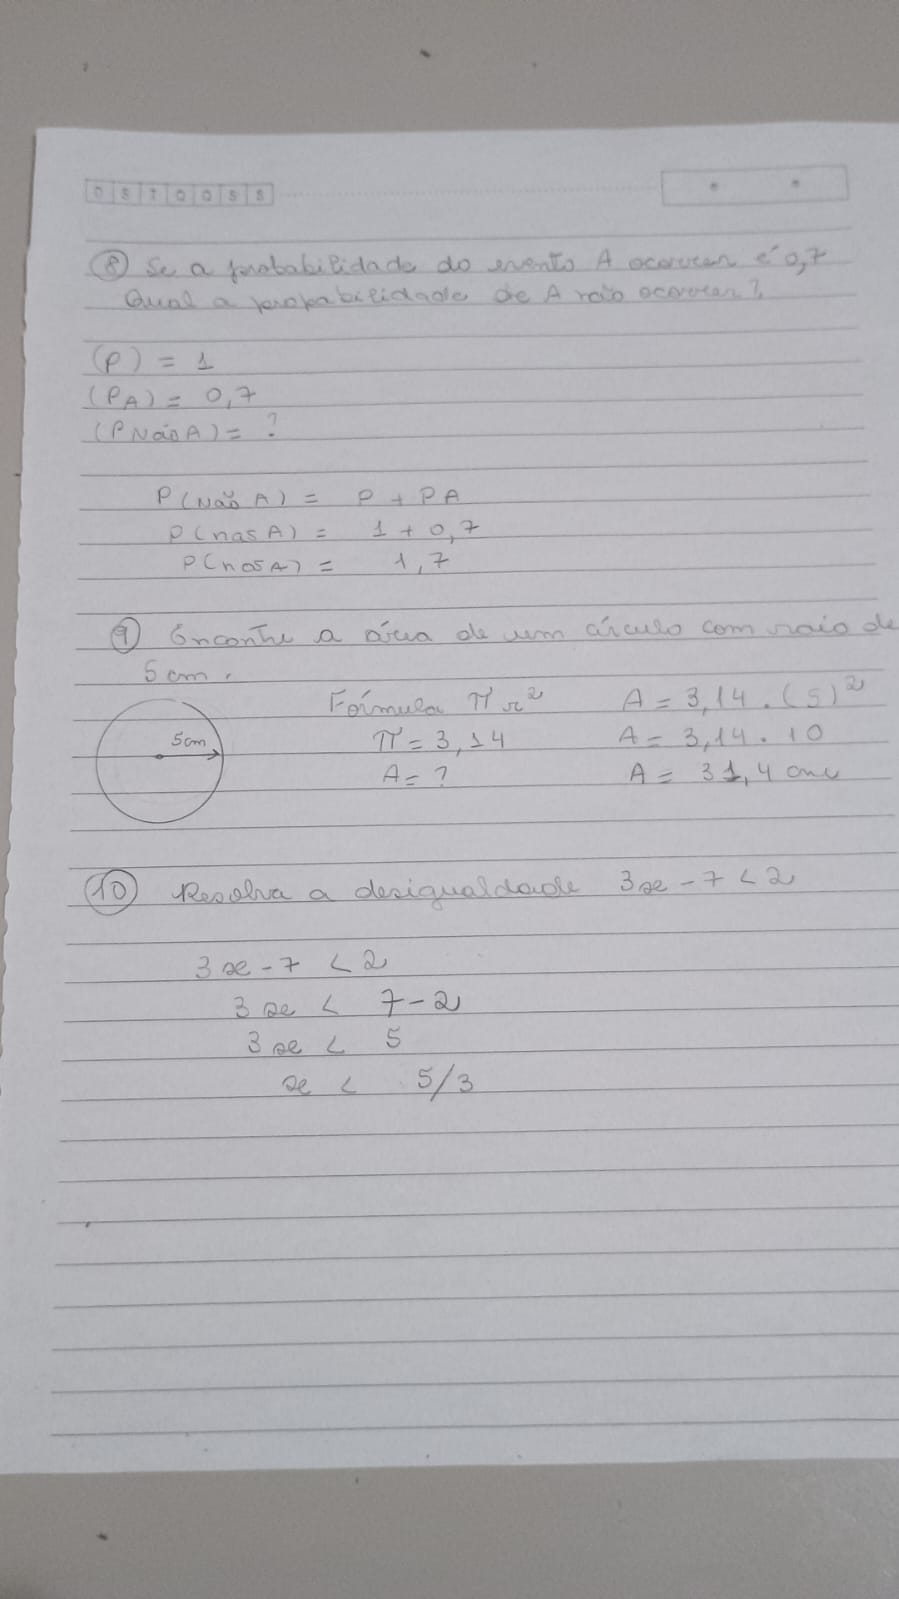 D S T Q Q S S
8 Se a probabilidade do evento A ocorrer é 0,7
Qual a propabilidade de A não ocorrer?
(P) = 1
(PA) = 0,7
(P Não A) = ?
P(Não A) = P + PA
P(não A) = 1 + 0,7
P(não A) = 1,7
9 Encontre a área de um círculo com raio de
5 cm.
5cm
Fórmula π r²
π = 3,14
A = ?
A = 3,14 . (5)²
A = 3,14 . 10
A = 31,4 cm
10 Resolva a desigualdade 3x - 7 < 2
3x - 7 < 2
3x < 7 - 2
3x < 5
x < 5/3